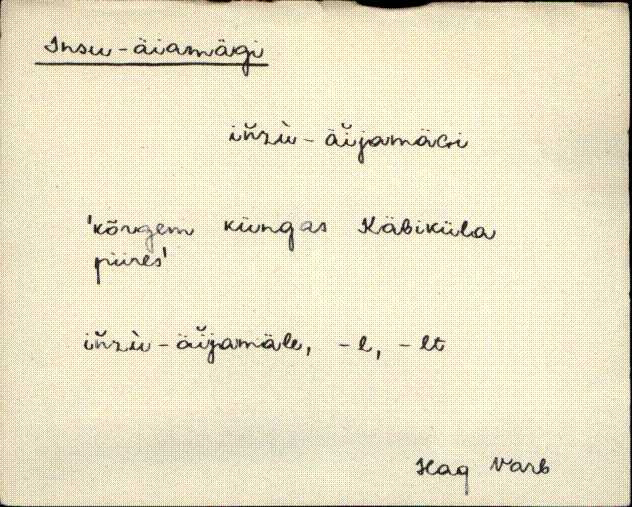 Insu-äiamägi
iňzù-äĭjamäGi
'kõrgem küngas Käbiküla
piires'
iňzù-äĭjamäle, -l, -lt
Hag Varb